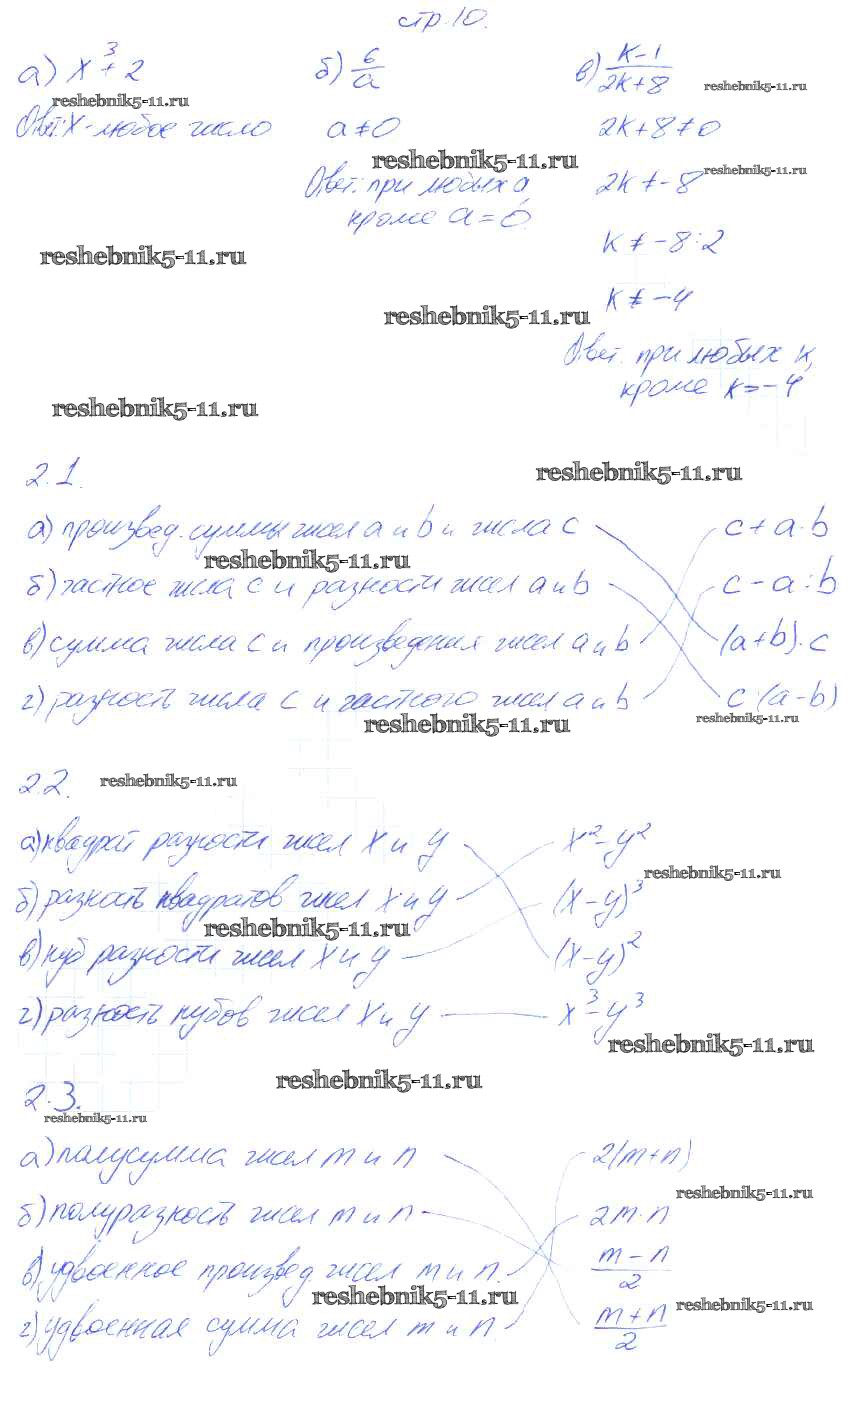 стр. 10.
а) x³ + 2
б) 6/a
в) (k-1)/(2k+8)
reshebnik5-11.ru
reshebnik5-11.ru
Ответ: X - любое число
a ≠ 0
2k+8 ≠ 0
reshebnik5-11.ru
reshebnik5-11.ru
Ответ: при любых a
кроме a = 0.
2k ≠ -8
k ≠ -8 : 2
reshebnik5-11.ru
k ≠ -4
reshebnik5-11.ru
Ответ. при любых k,
кроме k = -4
reshebnik5-11.ru
2.1.
reshebnik5-11.ru
а) произвед. суммы чисел a и b и числа c
c + a · b
reshebnik5-11.ru
б) частное числа c и разности чисел a и b
c - a : b
в) сумма числа c и произведения чисел a и b
(a+b) · c
г) разность числа c и частного чисел a и b
c · (a-b)
reshebnik5-11.ru
reshebnik5-11.ru
2.2.
reshebnik5-11.ru
а) квадрат разности чисел x и y
x² - y²
reshebnik5-11.ru
б) разность квадратов чисел x и y
(x-y)³
reshebnik5-11.ru
в) куб разности чисел x и y
(x-y)²
г) разность кубов чисел x и y
x³ - y³
reshebnik5-11.ru
reshebnik5-11.ru
2.3.
reshebnik5-11.ru
а) полусумма чисел m и n
2(m+n)
reshebnik5-11.ru
б) полуразность чисел m и n
2m · n
в) удвоенное произвед. чисел m и n.
(m-n)/2
reshebnik5-11.ru
reshebnik5-11.ru
г) удвоенная сумма чисел m и n.
(m+n)/2